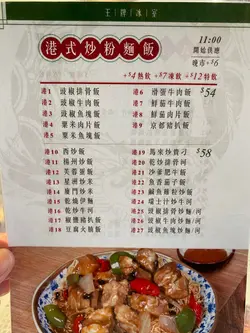 王牌冰室
港式炒粉麵飯
11:00
開始供應
晚市+$6
+$4熱飲 +$7凍飲 +$12特飲
港1 豉椒排骨飯
港2 豉椒牛肉飯
港3 豉椒魚塊飯
港4 粟米肉片飯
港5 粟米魚塊飯
港6 滑蛋牛肉飯 $54
港7 鮮茄牛肉飯
港8 鮮茄肉片飯
港9 京都豬扒飯
港10 西炒飯
港11 揚州炒飯
港12 芙蓉蛋飯
港13 星洲炒米
港14 廈門炒米
港15 乾燒伊麵
港16 乾炒牛河
港17 椒鹽豬扒飯
港18 豆腐火腩飯
港19 馬來炒貴刁 $58
港20 乾炒排骨河
港21 沙爹肥牛飯
港22 魚香茄子飯
港23 鹹魚雞粒炒飯
港24 瑞士汁炒牛河
港25 豉椒排骨炒麵/河
港26 豉椒牛肉炒麵/河
港27 豉椒魚塊炒麵/河